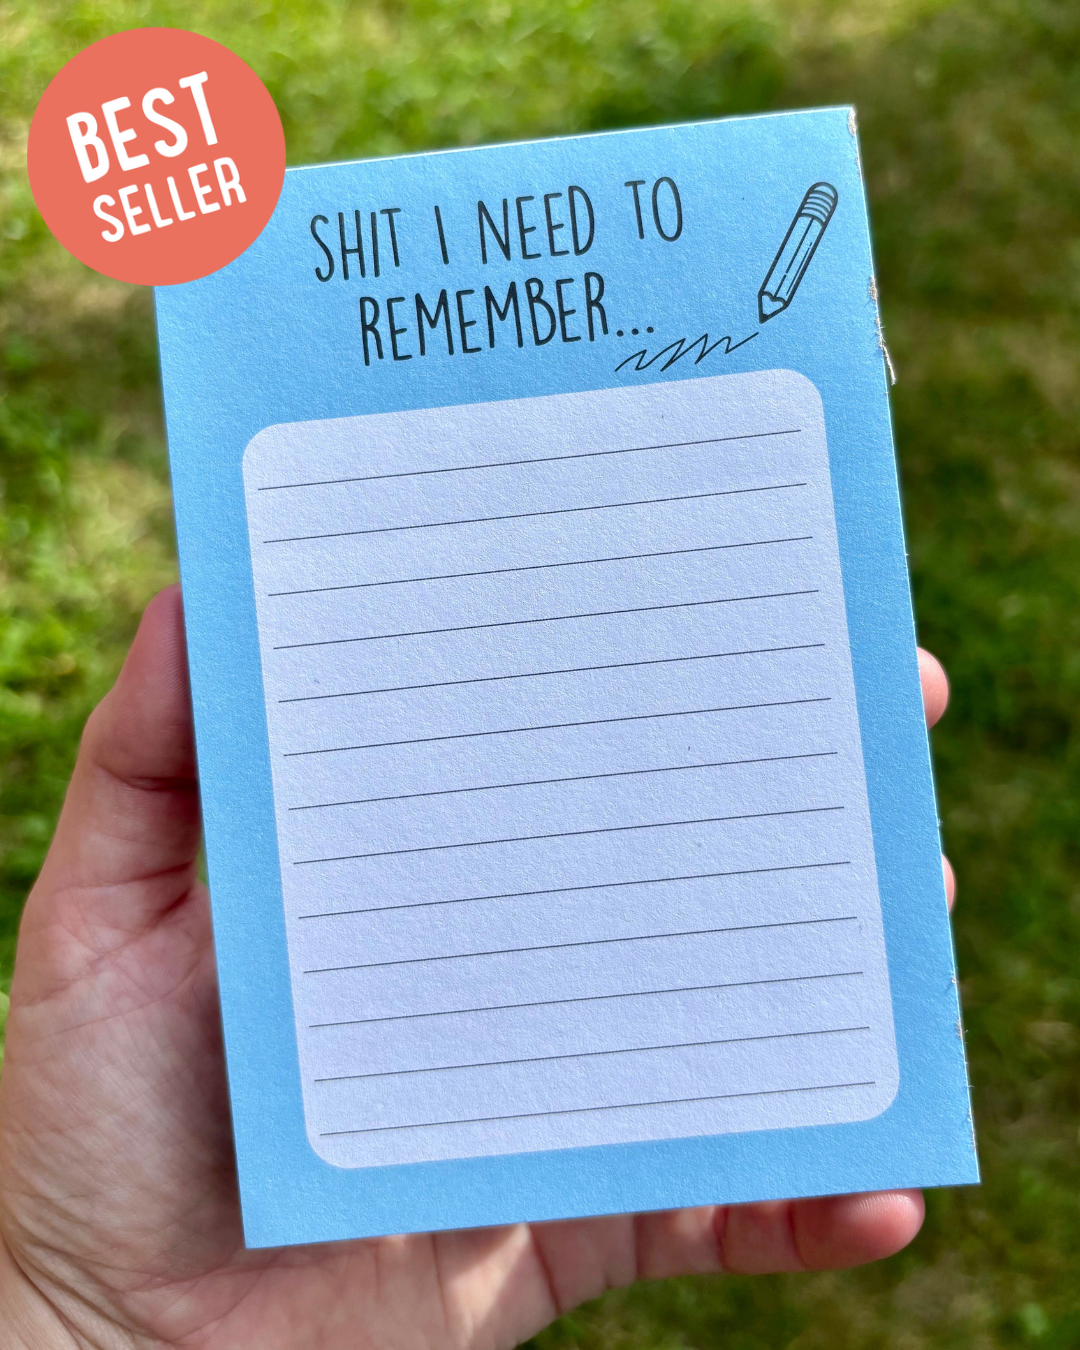 BEST
SELLER
SHIT I NEED TO
REMEMBER...